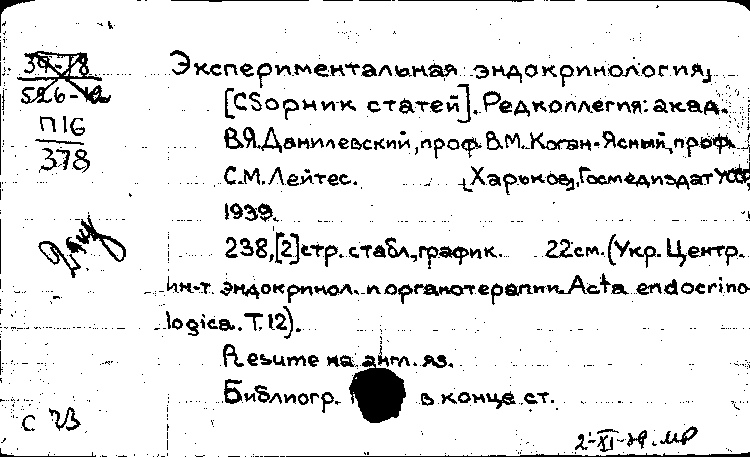 39-18
526-12
П16
378
Экспериментальная эндокринология,
[Сборник статей]. Редколлегия: акад.
В.Я. Данилевский, проф. В.М. Коган-Ясный, проф.
С.М. Лейтес. [Харьков], Госмедиздат УССР,
1939.
238,[2] стр. с табл., график. 22 см. (Укр. Центр.
ин-т эндокринол. и органотерапии. Acta endocrino-
logica. Т.12).
Resume на англ. яз.
Библиогр. в конце ст.
С 23
2-XI-39. МР